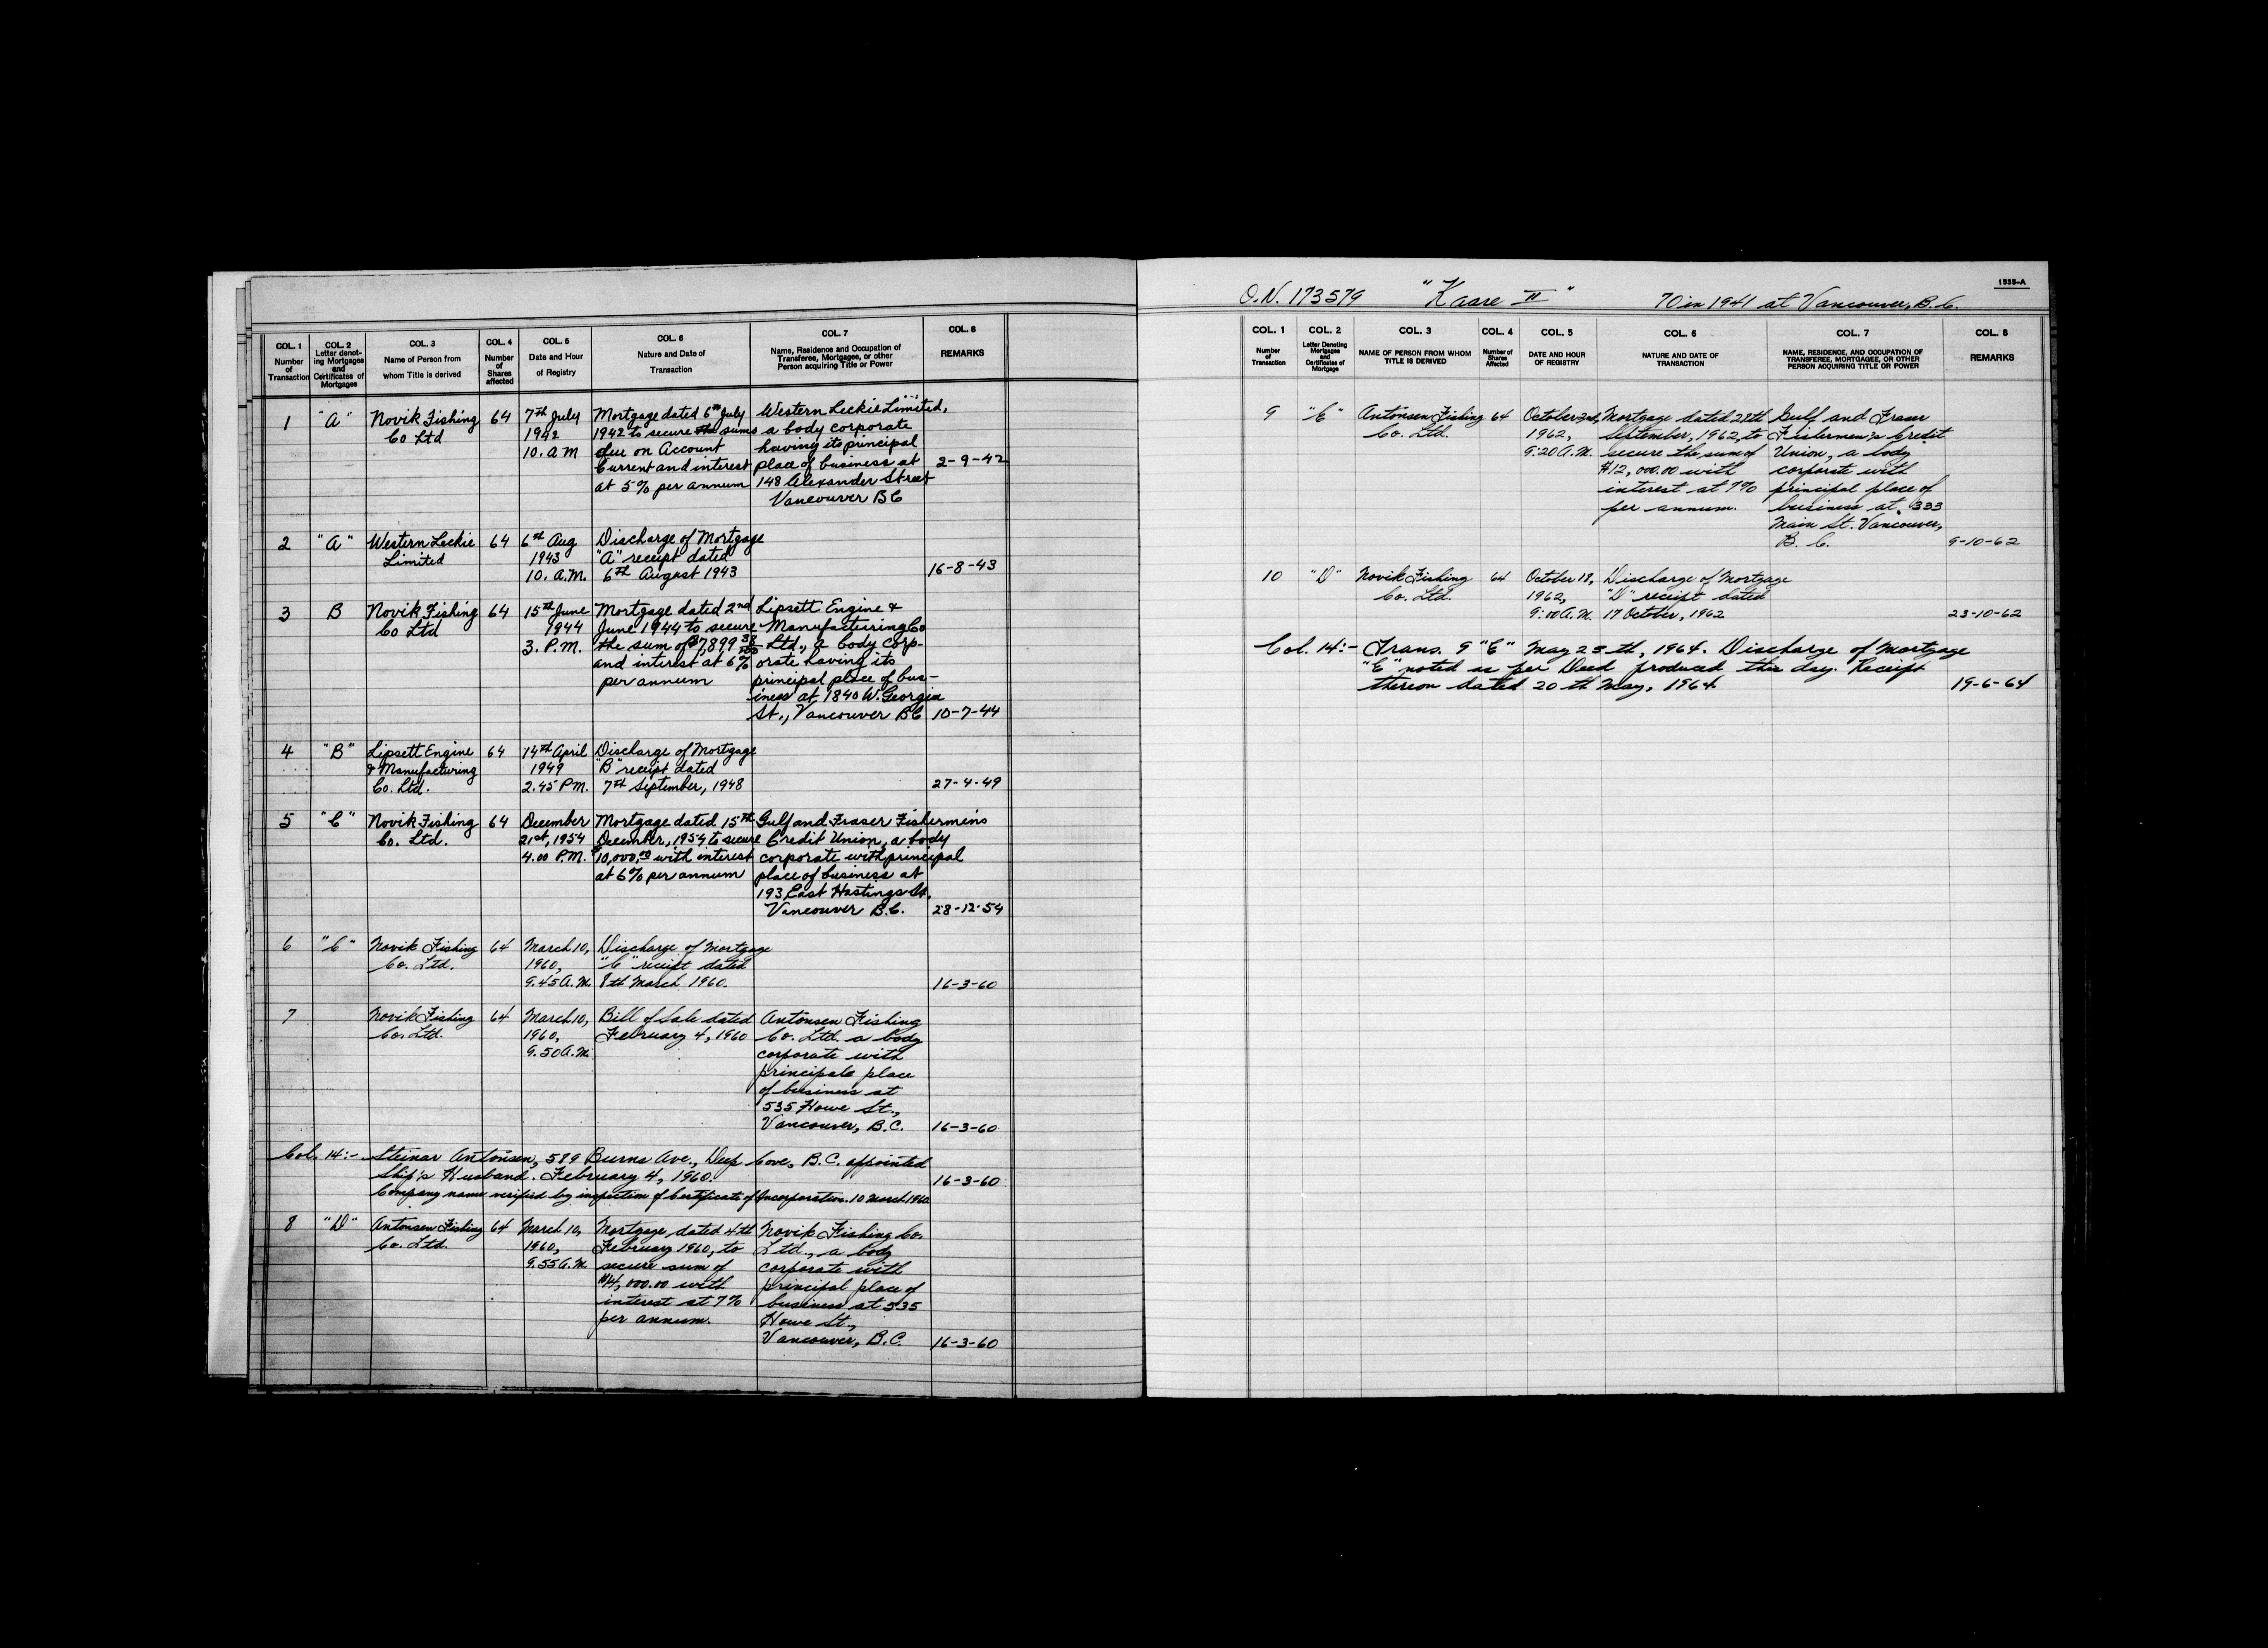 COL. 1 COL. 2 COL. 3 COL. 4 COL. 5 COL. 6 COL. 7 COL. 8
Number of Transaction
Letter denoting Mortgages and Certificates of Mortgages
Name of Person from whom Title is derived
Number of Shares affected
Date and Hour of Registry
Nature and Date of Transaction
Name, Residence and Occupation of Transferee, Mortgagee, or other Person acquiring Title or Power
REMARKS
1 "A" Novik Fishing 64 7th July Mortgage dated 6th July Western Leckie Limited,
Co Ltd 1942 1942 to secure the sums a body corporate
10. A M due on Account having its principal
Current and interest place of business at 2-9-42
at 5% per annum 148 Alexander Street
Vancouver BC
2 "A" Western Leckie 64 6th Aug Discharge of Mortgage
Limited 1943 "A" receipt dated
10. A.M. 6th August 1943 16-8-43
3 B Novik Fishing 64 15th June Mortgage dated 2nd Lipsett Engine &
Co Ltd 1944 June 1944 to secure Manufacturing Co
3. P.M. the sum of $7,899 38/100 Ltd., a body corp-
and interest at 6% orate having its
per annum principal place of bus-
iness at 1840 W. Georgia
St., Vancouver BC 10-7-44
4 "B" Lipsett Engine 64 14th April Discharge of Mortgage
& Manufacturing 1949 "B" receipt dated
Co. Ltd. 2.45 P.M. 7th September, 1948 27-4-49
5 "C" Novik Fishing 64 December Mortgage dated 15th Gulf and Fraser Fishermen's
Co. Ltd. 21st, 1954 December, 1954 to secure Credit Union, a body
4.00 P.M. $10,000.00 with interest corporate with principal
at 6% per annum place of business at
193 East Hastings St,
Vancouver B.C. 28-12-54
6 "C" Novik Fishing 64 March 10, Discharge of Mortgage
Co. Ltd. 1960, "C" receipt dated
9.45 A.M. 8th March 1960. 16-3-60
7 Novik Fishing 64 March 10, Bill of Sale dated Antonsen Fishing
Co. Ltd. 1960, February 4, 1960 Co. Ltd. a body
9.50 A.M. corporate with
principale place
of business at
535 Howe St.,
Vancouver, B.C. 16-3-60
Col. 14:- Steinar Antonsen, 589 Burns Ave., Deep Cove, B.C. appointed
Ship's Husband. February 4, 1960. 16-3-60
Company name verified by inspection of Certificate of Incorporation. 10 March 1960
8 "D" Antonsen Fishing 64 March 10, Mortgage dated 4th Novik Fishing Co.
Co. Ltd. 1960, February 1960, to Ltd., a body
9.55 A.M. secure sum of corporate with
$14,000.00 with principal place of
interest at 7% business at 535
per annum. Howe St.,
Vancouver, B.C. 16-3-60
1535-A
O.N. 173579 "Kaare II" 70 in 1941 at Vancouver, B.C.
COL. 1 COL. 2 COL. 3 COL. 4 COL. 5 COL. 6 COL. 7 COL. 8
Number of Transaction
Letter Denoting Mortgages and Certificates of Mortgage
NAME OF PERSON FROM WHOM TITLE IS DERIVED
Number of Shares Affected
DATE AND HOUR OF REGISTRY
NATURE AND DATE OF TRANSACTION
NAME, RESIDENCE, AND OCCUPATION OF TRANSFEREE, MORTGAGEE, OR OTHER PERSON ACQUIRING TITLE OR POWER
REMARKS
9 "E" Antonsen Fishing 64 October 2nd, Mortgage dated 28th Gulf and Fraser
Co. Ltd. 1962, September, 1962, to Fishermen's Credit
9:20 A.M. secure the sum of Union, a body
$12,000.00 with corporate with
interest at 7% principal place of
per annum. business at 333
Main St. Vancouver,
B. C. 9-10-62
10 "D" Novik Fishing 64 October 18, Discharge of Mortgage
Co. Ltd. 1962, "D" receipt dated
9:00 A.M. 17 October, 1962 23-10-62
Col. 14:- Trans. 9 "E" May 25th, 1964. Discharge of Mortgage
"E" noted as per Deed produced this day. Receipt
thereon dated 20th May, 1964. 19-6-64